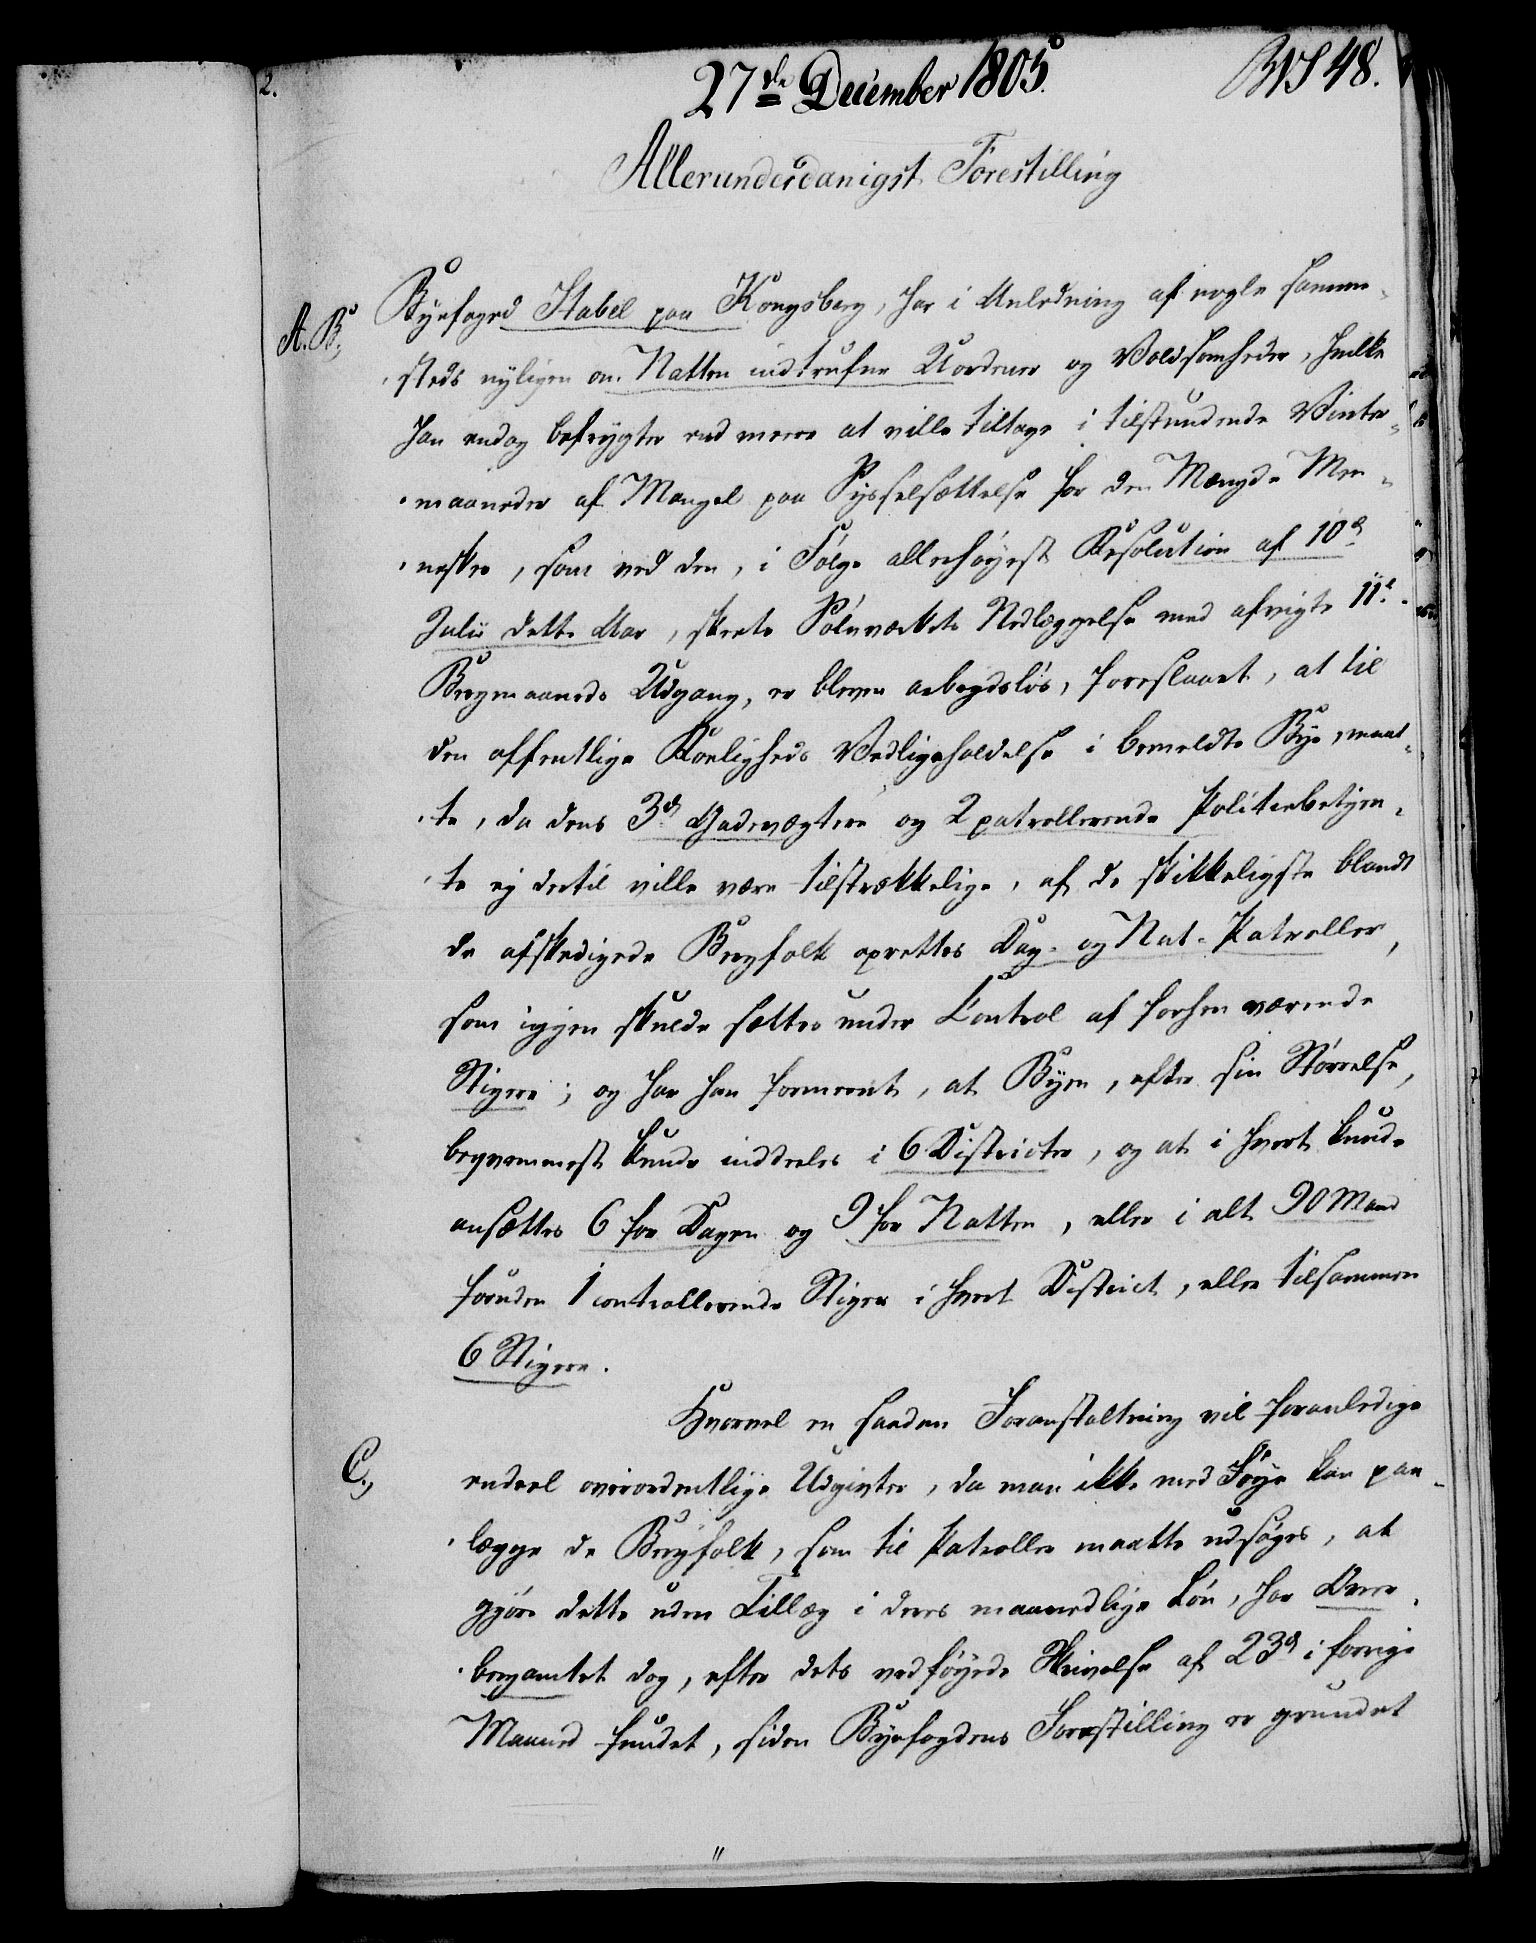 2.
27de December 1805.
No 48.
Allerunderdanigst Forestilling
A. B.
Byefoged Stabel paa Kongsberg, har i Anledning af nogle samme-
steds nyligen om Natten indtrufne Uordener og Voldsomheder, hvilke
han endog befrygter end mere at ville tiltage i tilstundende Vinter-
maaneder af Mangel paa Sysselsættelse for den Mængde Men-
nesker, som ved den, i Følge allerhøyest Resolution af 10de
Julii dette Aar, skeete Sølvværkets Nedlæggelse med afvigte 11te
Bergmaaneds Udgang, er bleven arbeydsløs, foreslaaet, at til
den offentlige Roeligheds Vedligeholdelse i bemeldte Bye, maat-
te, da dens 3de Gadevægtere og 2 patrollerende Politiebetjen-
te ej dertil ville være tilstrækkelige, af de skikkeligste blandt
de afskedigede Bergfolk oprettes Dag- og Nat-Patroller,
som igjen skulde sættes under Control af forhen værende
Stigere; og har han formeent, at Byen, efter sin Størrelse,
beqvemmest kunde inddeeles i 6 Districter, og at i hvert kunde
ansættes 6 for Dagen og 9 for Natten, eller i alt 90 Mand
foruden 1 controllerende Stiger i hvert District, eller tilsammen
6 Stigere.
Hvorvel en saadan Foranstaltning vil foranledige
C.
endeel overordentlige Udgivter, da man ikke med Føye kan paa-
lægge de Bergfolk, som til Patroller maatte udsøges, at
gjøre dette uden Tillæg i deres maanedlige Løn, har Over-
bergamtet dog, efter dets vedføyede Skrivelse af 23de i forrige
Maaned fundet, siden Byefogdens Forestilling er grundet